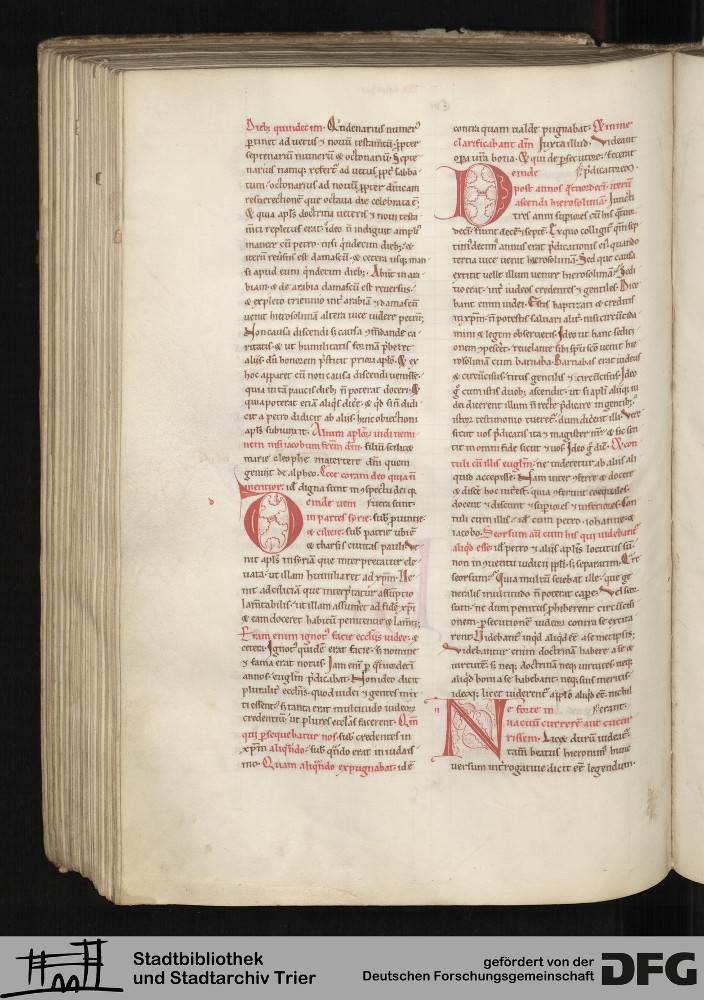 Dieb; quindecim. Q'ndenarius numer'
p'tinet ad vetus & novũ testam̃tũ. ꝓpter
septenariũ numerũ & octonariũ. Septe
narius namq; refert' ad vetus ꝓpt' sabba
tum. octonarius ad novũ. ꝓpter d̃nicam
resurrectionẽ que octava die celebrata ẽ.
& quia apl's doctrina veteris & novi testa
m̃ti repletus erat. ideo ñ indiguit amplꝰ
manere cũ petro. nisi q'ndecim dieb;. &
iterũ reũsus est damascũ. & cetera usq; man
si apud eum q'ndecim dieb;. Abiit in ara
biam. & de arabia damascũ est reversus.
& expleto triennio int' arabiã & damascũ
venit hierosolimã altera vice videre petrũ.
Non causa discendi. s; causa cõmdande ca
ritatis. & ut humilitatis formã p'beret
aliis. dũ honorem p'stitit priori apl'o. & ex
hoc apparet eũ non causa discendi venisse.
quia in tã paucis dieb; ñ poterat doceri. &
quia poterat etiã aliq's dic̃e. & q'd si ñ didi
cit a petro didicit ab aliis. huic obiectioni
apl's subiunxit. Alium apl'oꝝ vidi nemi
nem nisi iacobum fr̃em dñi. filiũ scilic&
marie cleophe matertere dñi. quem
genuit de alpheo. Ecce coram deo quia ñ
mentior. id' digna sunt in c̃spectu dei q;
einde veni fuera sunt.
in partes syrie. sub
& cilicie. sub patrie ubi ẽ
& tharsis civitas pauli. Ve
nit apl's in syriã que interpretatur ele
vata. ut illam humiliaret ad xp̃m. Ve
nit ad ciliciã que interp'tatur assũptio
lam̃tabilis. ut illam assumet ad fidẽ xp̃i
& eam doceret habitũ penitentie & lam̃tũ.
Eram enim ignot' facie eccl'iis iudee. &
cetera. Ignot' quidẽ erat facie. s; nomine
& fama erat notus. Jam em̃ p q'tuordeci
annos evgl'm p'dicabat. Non ideo dicit
pluralit' eccl'iis. quod iudei & gentes mix
ti essent. s; tanta erat multitudo iudeoꝝ
credentiũ. ut plures eccl'as facerent. Qm̃
qui p'sequebatur nos. sub. credentes in
xp̃m aliq'ndo. sub. q'ndo erat in iudais
mo. Quam aliq'ndo expugnabat. id ẽ
contra quam valde pugnabat. & in me
clarificabant dm̃. Juxta illud. Videant
op̃a vr̃a bona. & qui de p'secutore. fecerat
einde p'dicatorẽ.
post annos q'tuordecĩ. iterũ
ascendi hierosolimã. Juncti
tres anni supiores cũ his q'tuor
decẽ. fiunt decẽ & septẽ. Ex quo colligit' qm̃ sep
tim'decim' annus erat p'dicationis ei'. quando
tertia vice venit hierosolimã. Sed que causa
extitit velle illum venire hierosolimã. Sedi
tio erat. int' iudeos credentes & gentiles. Dice
bant enim iudei. Etsi baptizati & crediti
in xp̃m. ñ potestis salvari alit' nisi circũcida
mini & legem observetis. Ideo ut hanc sediti
onem c̃pesc'et. revelante sibi sp̃u sc̃o venit hie
rosolimã cum barnaba. Barnabas erat iudeus
& circũcisus. titus gentilis & ĩcircũcisus. Ideo
g̊ cum istis duob; ascendit. ut si apl'i aliq; iu
dei dicerent illum ñ recte p'dicare in gentib;.
horz testimonio tueret'. dum dicent illi. Vere
sicut vos p'dicatis ita & magister nr̃. & sic sen
tit in omni fide sicut & vos. Ideo g̊ dic̃. & con
tuli cũ illis evgl'm. ne videretur ab aliis ali
quid accepisse. Nam inter c̃ferre & docere
& disc'e hoc int'est. quia c̃ferunt coequales.
docent & discunt & supiores & inferiores. Con
tuli cum illis. id' cum petro. iohanne. &
iacobo. Seorsum aũt cum his qui videbant'
aliqd esse. id' petro & aliis apl'is locutus sũ.
non in c̃ventu iudaici ppl'i. s; separatim. Cur
seorsum. Quia multũ sciebat ille. que ge
neralis multitudo ñ poterat cape. Vel seor
sum. ne dum penitus p'hiberent circũcisi
onem. p'secutionẽ iudeoꝝ contra se excita
rent. Videbant' inqd aliqd eẽ. a se metipsis.
Videbantur enim doctrinã habere a se &
virtutẽ. s; neq; doctrinã neq; virtutes. neq;
aliqd boni a se habebant. neq; suis meritis.
ideoq; licet viderent' app'to aliqd eẽ. nichil
e forte in erant.
vacuũ currerẽ aut cucur
rissem. Licet durũ videat'
tam̃ beatus hieronim' hunc
versum int'rogative dicit eẽ legendum.
Stadtbibliothek
und Stadtarchiv Trier
gefördert von der
Deutschen Forschungsgemeinschaft
DFG